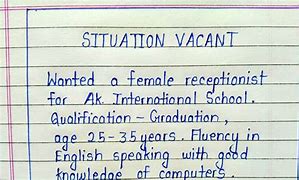 SITUATION VACANT
Wanted a female receptionist
for Ak. International School.
Qualification - Graduation,
age 25-35 years. Fluency in
English speaking with good
knowledge of computers.